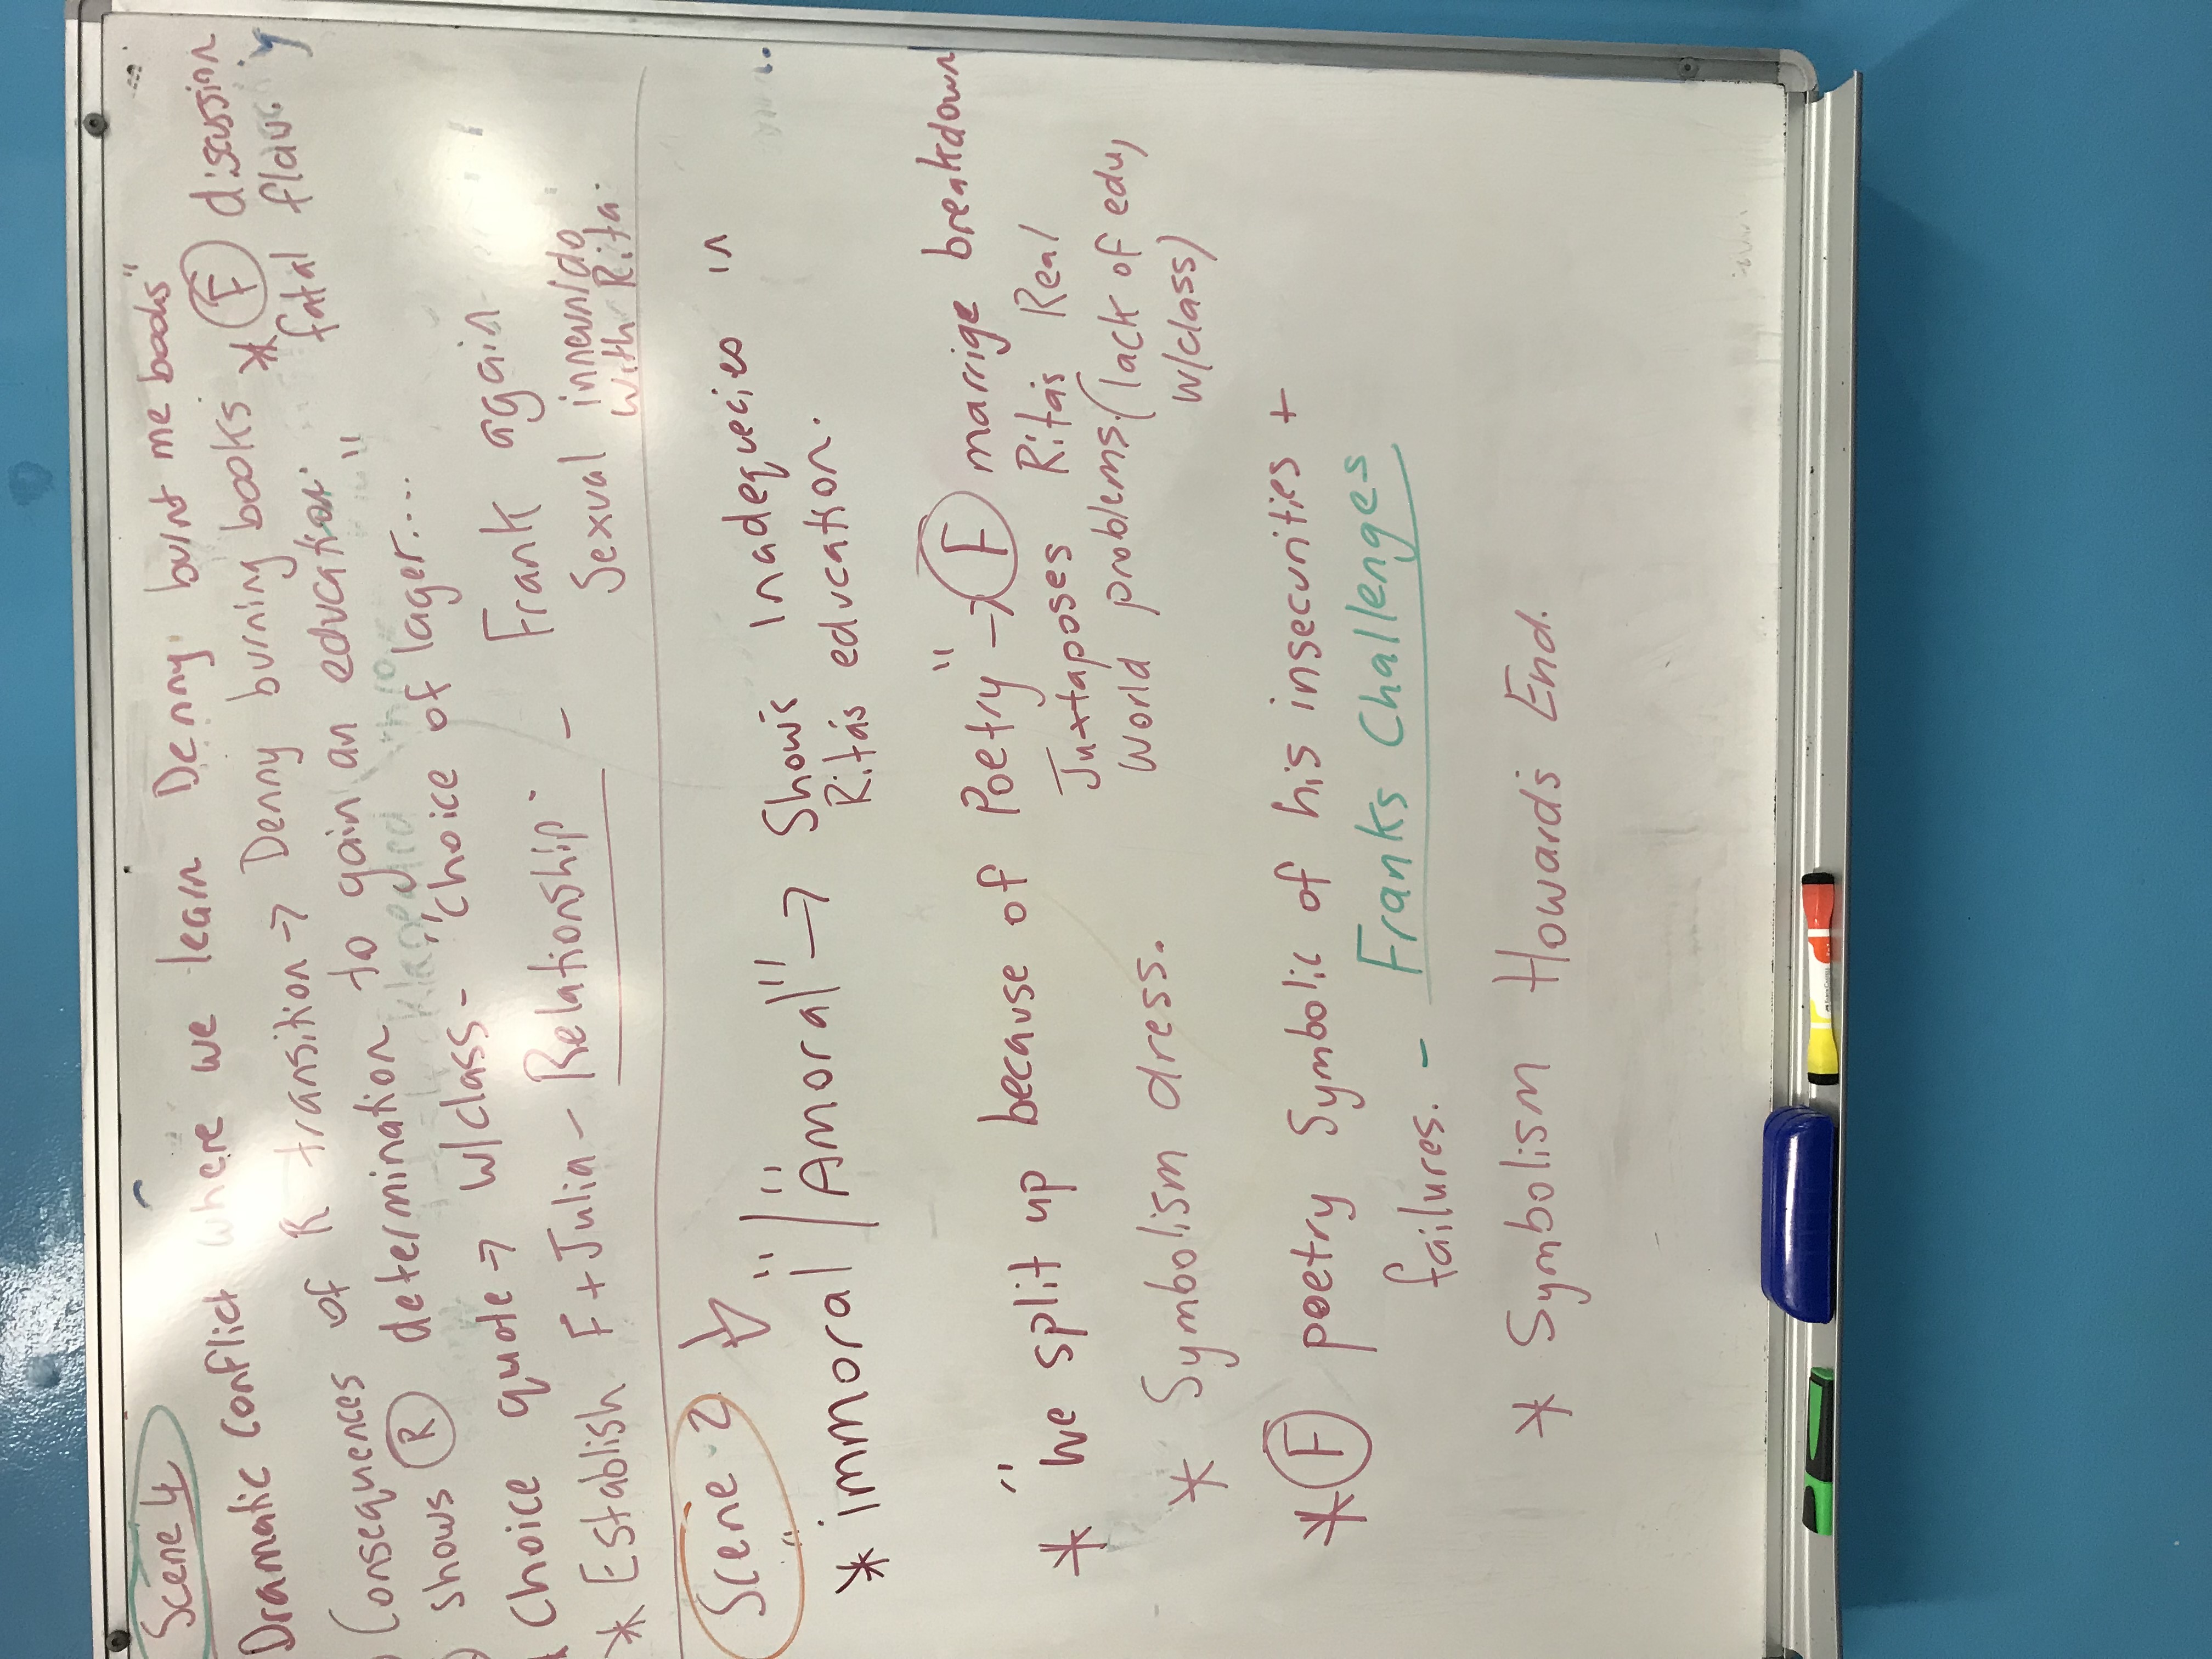 Scene 4
Dramatic conflict where we learn Denny burnt me books"
Consequences of R transition → Denny burning books
* F discussion
fatal flaw.
shows R determination to gain an education.
Choice quote → w/class - "Choice of lager...."
* Establish F + Julia - Relationship. - Frank again
Sexual inneun/do
with Rita.
Scene 2
* "immoral" / "Amoral" → Show's Inadequecies in
Rita's education.
* "we split up because of Poetry" → F marrige breakdown
Juxtaposes Rita's Real
World problems. (lack of edu,
w/class)
* Symbolism dress.
* F poetry Symbolic of his insecurities +
failures. - Franks Challenges
* Symbolism Howard's End.